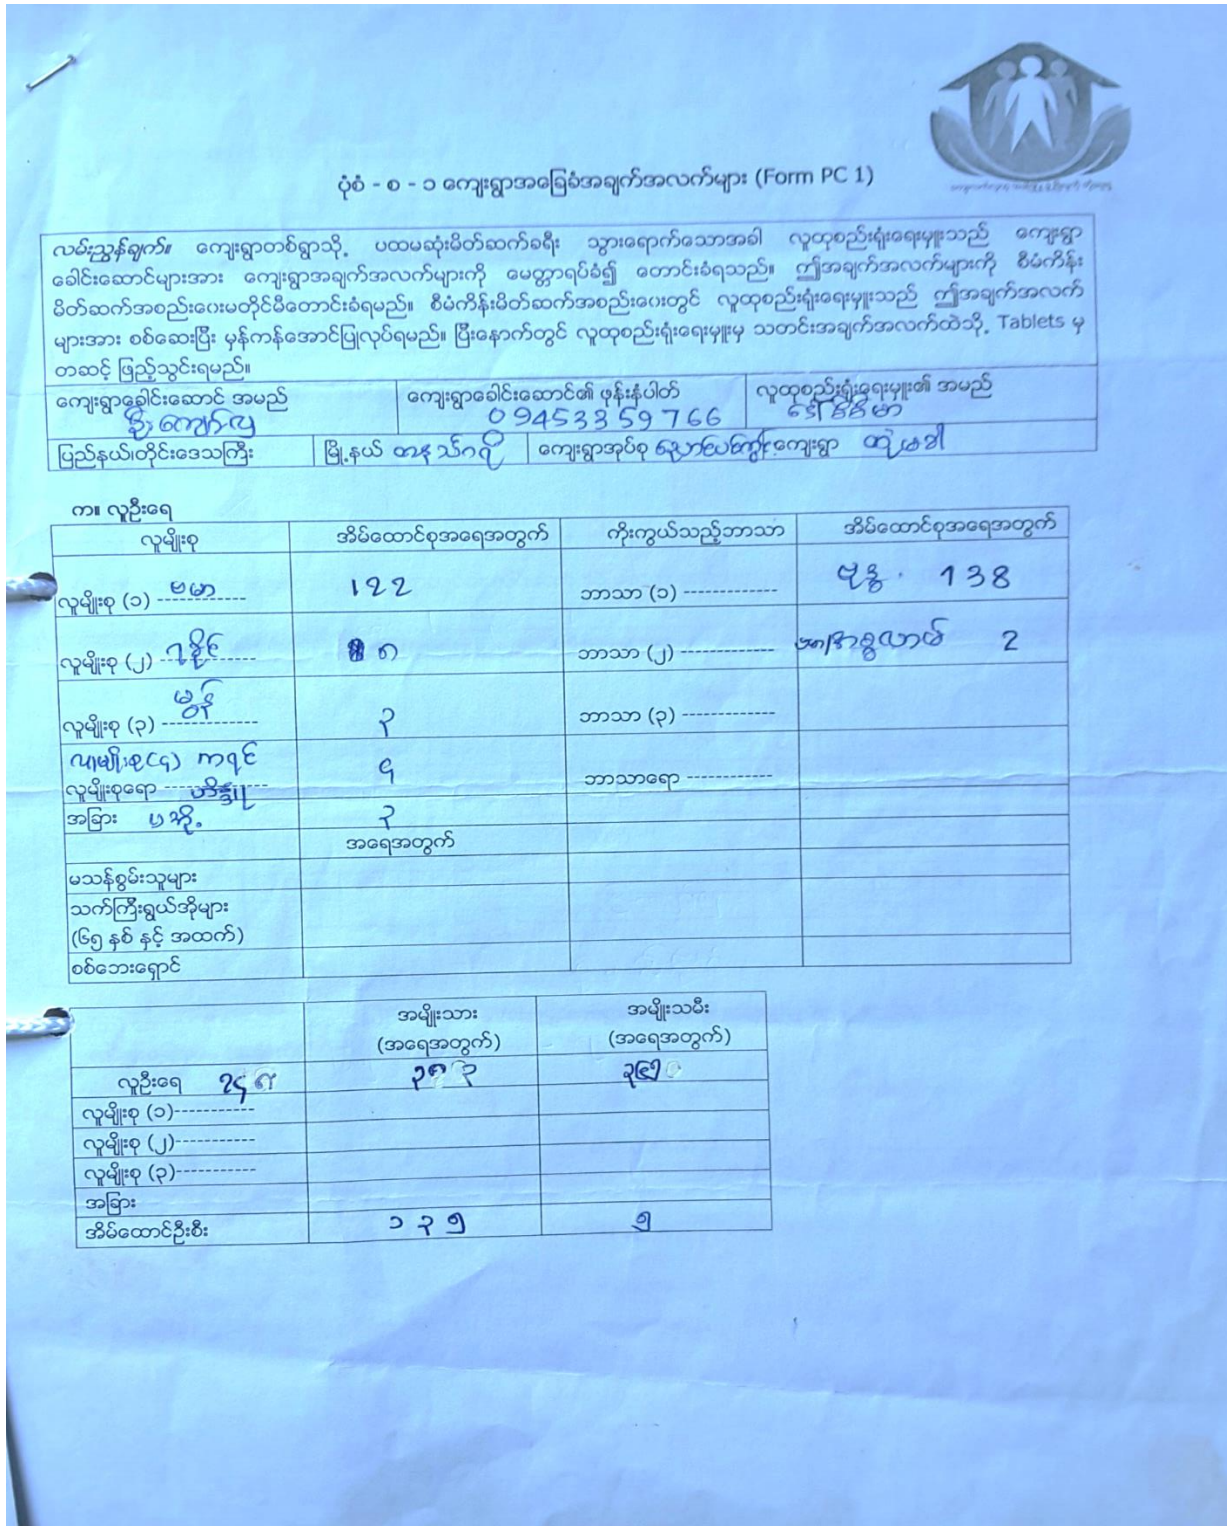 ပုံစံ - စ - ၁ ကျေးရွာအခြေခံအချက်အလက်များ (Form PC 1)
လမ်းညွှန်ချက်။ ကျေးရွာတစ်ရွာသို့ ပထမဆုံးမိတ်ဆက်ခရီး သွားရောက်သောအခါ လူထုစည်းရုံးရေးမှူးသည် ကျေးရွာ
ခေါင်းဆောင်များအား ကျေးရွာအချက်အလက်များကို မေတ္တာရပ်ခံ၍ တောင်းခံရသည်။ ဤအချက်အလက်များကို စီမံကိန်း
မိတ်ဆက်အစည်းဝေးမတိုင်မီတောင်းခံရမည်။ စီမံကိန်းမိတ်ဆက်အစည်းဝေးတွင် လူထုစည်းရုံးရေးမှူးသည် ဤအချက်အလက်
များအား စစ်ဆေးပြီး မှန်ကန်အောင်ပြုလုပ်ရမည်။ ပြီးနောက်တွင် လူထုစည်းရုံးရေးမှူးမှ သတင်းအချက်အလက်ထဲသို့ Tablets မှ
တဆင့် ဖြည့်သွင်းရမည်။
ကျေးရွာခေါင်းဆောင် အမည် ကျေးရွာခေါင်းဆောင်၏ ဖုန်းနံပါတ် လူထုစည်းရုံးရေးမှူး၏ အမည်
ဦးကျော်လှ 09453359766 ဒေါ်စီစီမာ
ပြည်နယ်၊တိုင်းဒေသကြီး မြို့နယ် တနင်္သာရီ ကျေးရွာအုပ်စု ကျေးရွာ
က။ လူဦးရေ
လူမျိုးစု အိမ်ထောင်စုအရေအတွက် ကိုးကွယ်သည့်ဘာသာ အိမ်ထောင်စုအရေအတွက်
လူမျိုးစု (၁) ဗမာ 122 ဘာသာ (၁) ------------- ဗုဒ္ဓ. 138
လူမျိုးစု (၂) ရခိုင် ၈ ဘာသာ (၂) ------------- အစ္စလာမ် 2
လူမျိုးစု (၃) မွန် ၃ ဘာသာ (၃) -------------
လူမျိုးစု(၄) ကရင် ၄
လူမျိုးစုရော ဟိန္ဒူ ဘာသာရော ------------
အခြား ပအို့ ၃
အရေအတွက်
မသန်စွမ်းသူများ
သက်ကြီးရွယ်အိုများ
(၆၅ နှစ် နှင့် အထက်)
စစ်ဘေးရှောင်
အမျိုးသား အမျိုးသမီး
(အရေအတွက်) (အရေအတွက်)
လူဦးရေ
လူမျိုးစု (၁)-----------
လူမျိုးစု (၂)-----------
လူမျိုးစု (၃)-----------
အခြား
အိမ်ထောင်ဦးစီး ၁၃၅ ၅